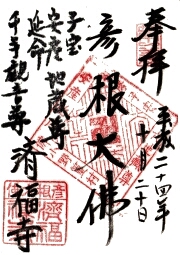 奉拝
平成二十四年
十月二十日
彦根大佛
子宝
安産
延命
地蔵尊
千手観音尊
済福寺